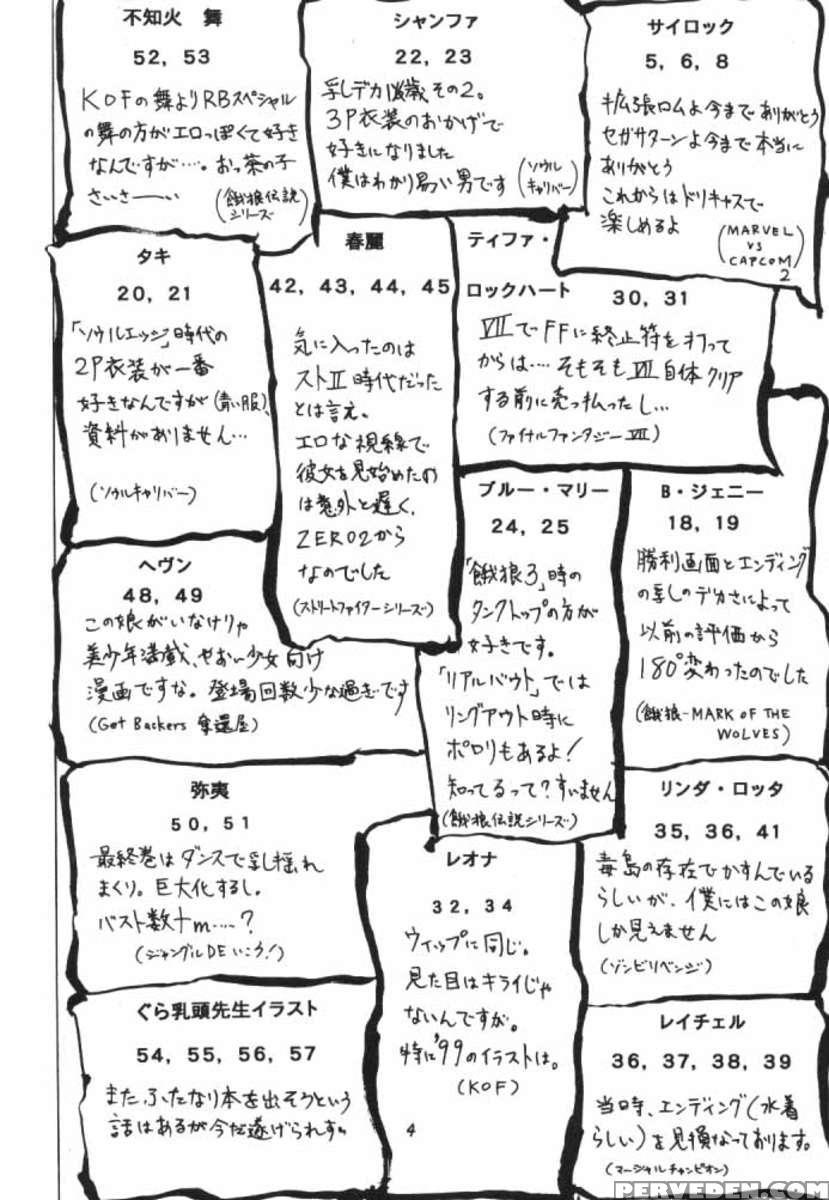 サイロック
5, 6, 8
拡張ロムよ今までありがとう
セガサターンよ今まで本当に
ありがとう
これからはドリキャスで
楽しめるよ
(MARVEL
VS
CAPCOM
2)
シャンファ
22, 23
乳しデカ 歳その2。
3P衣装のおかげで
好きになりました
僕はわかり易い男です
(ソウル
キャリバー)
不知火 舞
52, 53
KOFの舞よりRBスペシャル
の舞の方がエロっぽくて好き
なんですが…。おっ茶の子
さいさーーい
(餓狼伝説
シリーズ)
ティファ・
ロックハート
30, 31
VIIでFFに終止符を打って
からは…そもそもVII自体クリア
する前に売っ払ったし…
(ファイナルファンタジーVII)
春麗
42, 43, 44, 45
気に入ったのは
ストII時代だった
とは言え。
エロな視線で
彼女を見始めたの
は意外と遅く、
ZERO2から
なのでした
(ストリートファイターシリーズ)
タキ
20, 21
「ソウルエッジ」時代の
2P衣装が一番
好きなんですが(青い服)、
資料がありません…
(ソウルキャリバー)
B・ジェニー
18, 19
勝利画面とエンディング
の乳しのデカさによって
以前の評価から
180°変わったのでした
(餓狼-MARK OF THE
WOLVES)
ブルー・マリー
24, 25
「餓狼3」時の
タンクトップの方が
好きです。
「リアルバウト」では
リングアウト時に
ポロリもあるよ!
知ってるって?すいません
(餓狼伝説シリーズ)
ヘヴン
48, 49
この娘がいなけりゃ
美少年満載、やおい少女向け
漫画ですな。登場回数少な過ぎです
(Get Backers 奪還屋)
リンダ・ロッタ
35, 36, 41
毒島の存在でかすんでいる
らしいが、僕にはこの娘
しか見えません
(ゾンビリベンジ)
レオナ
32, 34
ウィップに同じ。
見た目はキライじゃ
ないんですが。
特に'99のイラストは。
(KOF)
弥夷
50, 51
最終巻はダンスで乳揺れ
まくり。巨大化するし。
バスト数十m……?
(ジャングルDEいこう!)
レイチェル
36, 37, 38, 39
当時、エンディング(水着
らしい)を見損なっております。
(マーシャルチャンピオン)
ぐら乳頭先生イラスト
54, 55, 56, 57
また、ふたなり本を出そうという
話はあるが今だ遂げられず。
4
PERVEDEN.COM